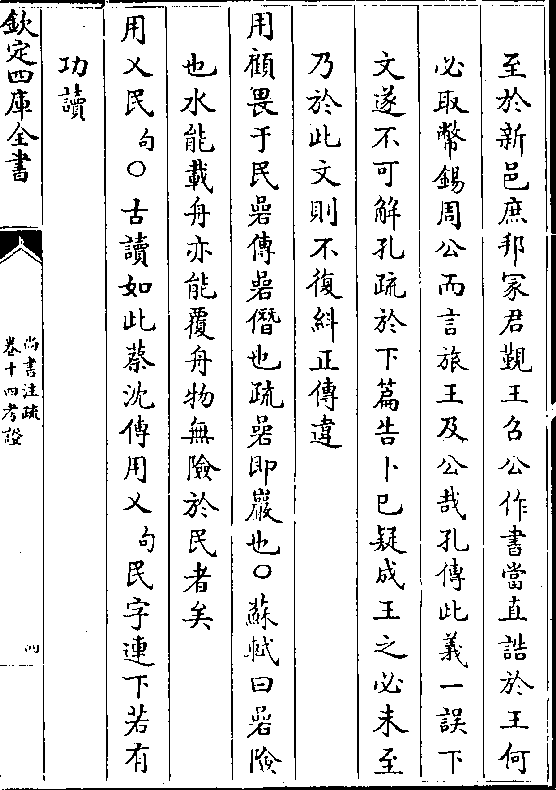 至於新邑庶邦冢君覲王召公作書當直誥於王何
必取幣錫周公而言旅王及公哉孔傳此義一誤下
文遂不可解孔疏於下篇告卜已疑成王之必未至
乃於此文則不復糾正傳違
用顧畏于民碞傳碞僭也疏碞即巖也○蘇軾曰碞險
也水能載舟亦能覆舟物無險於民者矣
用乂民句○古讀如此蔡沈傳用乂句民字連下若有
功讀
欽定四庫全書
尚書注疏
卷十四考證
四